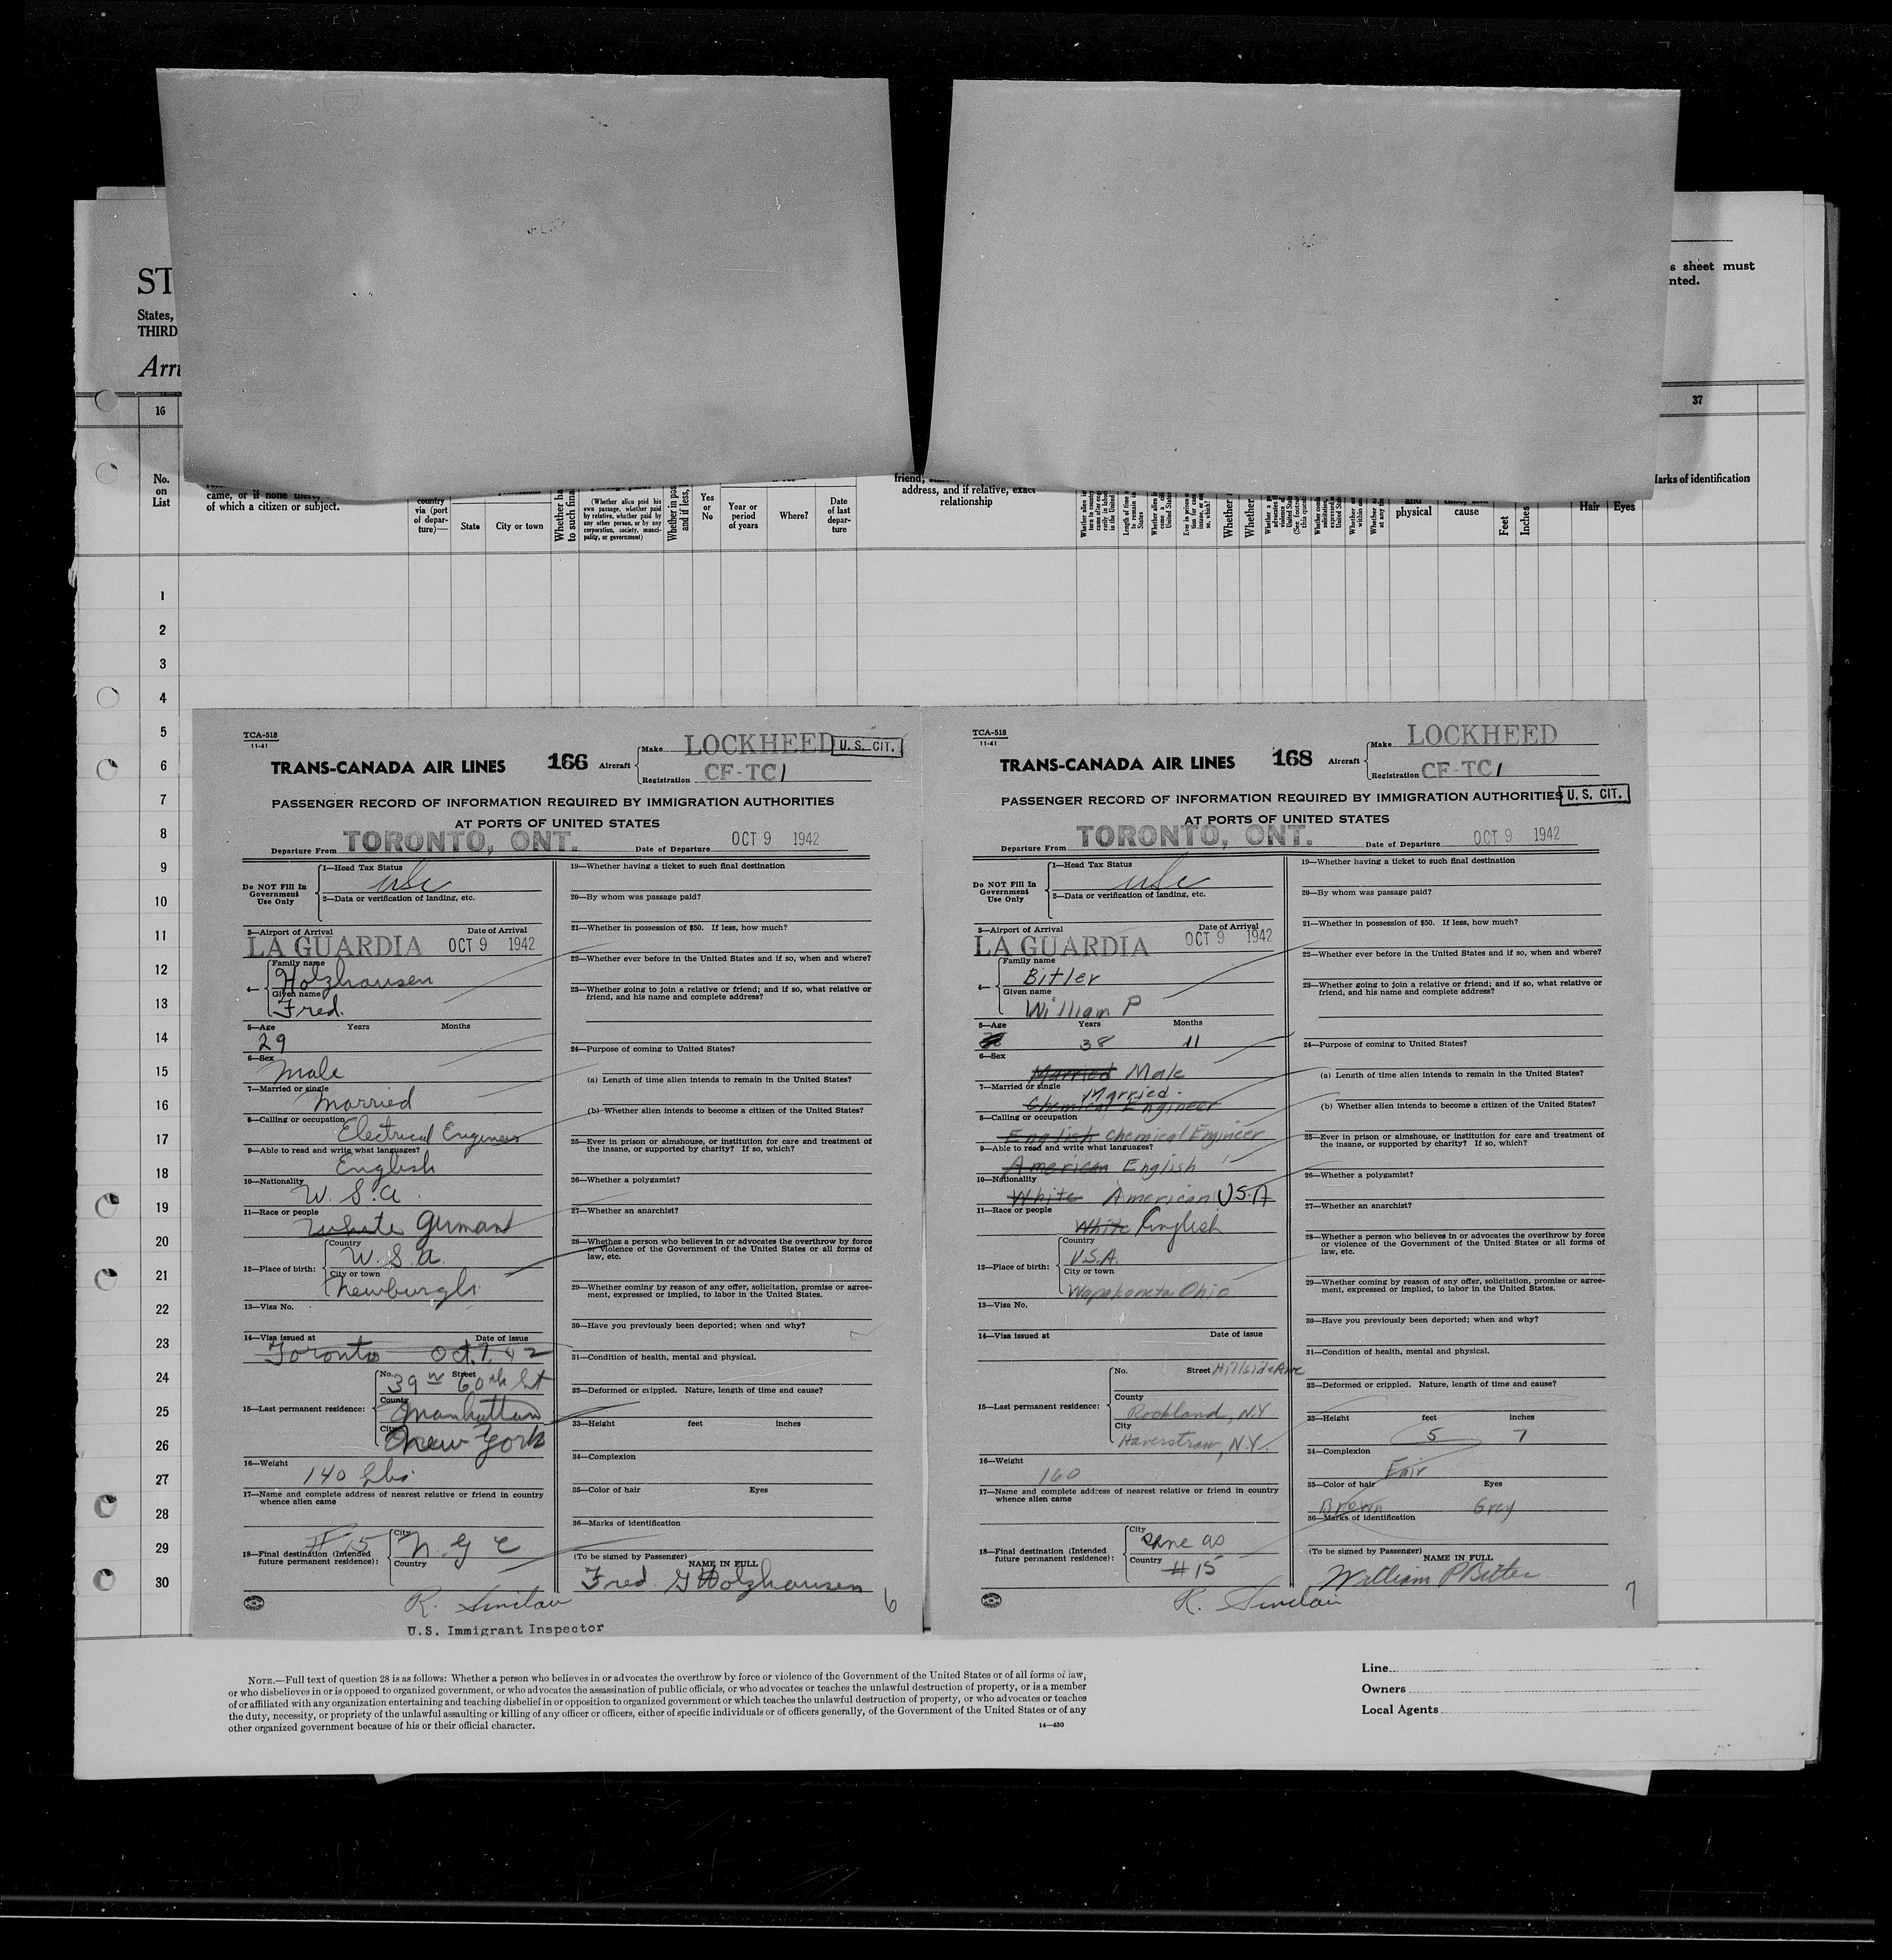 ST
States,
THIRD
Arri
s sheet must
nted.
16
37
No.
on
List
came, or if none there,
of which a citizen or subject.
country
via (port
of depar-
ture)—
State
City or town
Whether ha
to such fina
(Whether alien paid his
own passage, whether paid
by relative, whether paid by
any other person, or by any
corporation, society, munici-
pality, or government)
Whether in pos
and if less,
Yes
or
No
Year or
period
of years
Where?
Date
of last
depar-
ture
friend,
address, and if relative, exact
relationship
Whether
Whether
and
physical
cause
Feet
Inches
Hair
Eyes
Marks of identification
1
2
3
4
5
6
7
8
9
10
11
12
13
14
15
16
17
18
19
20
21
22
23
24
25
26
27
28
29
30
TCA-518
11-41
TRANS-CANADA AIR LINES 166 Aircraft
Make LOCKHEED U. S. CIT.
Registration CF-TCI
PASSENGER RECORD OF INFORMATION REQUIRED BY IMMIGRATION AUTHORITIES
AT PORTS OF UNITED STATES
Departure From TORONTO, ONT. Date of Departure OCT 9 1942
Do NOT Fill In
Government
Use Only
1—Head Tax Status
usc
2—Data or verification of landing, etc.
3—Airport of Arrival Date of Arrival
LA GUARDIA OCT 9 1942
4— Family name
Holzhausen
Given name
Fred.
5—Age Years Months
29
6—Sex
Male
7—Married or single
Married
8—Calling or occupation
Electrical Engineer
9—Able to read and write what languages?
English
10—Nationality
U. S. A.
11—Race or people
White German
12—Place of birth:
Country
U. S. A.
City or town
Newburgh
13—Visa No.
14—Visa issued at Date of issue
Toronto Oct. 7, 42
15—Last permanent residence:
No. Street
39 W 60th St
County
Manhattan
City
New York
16—Weight
140 lbs.
17—Name and complete address of nearest relative or friend in country
whence alien came
18—Final destination (Intended
future permanent residence):
#15
City
N.Y.C
Country
19—Whether having a ticket to such final destination
20—By whom was passage paid?
21—Whether in possession of $50. If less, how much?
22—Whether ever before in the United States and if so, when and where?
23—Whether going to join a relative or friend; and if so, what relative or
friend, and his name and complete address?
24—Purpose of coming to United States?
(a) Length of time alien intends to remain in the United States?
(b) Whether alien intends to become a citizen of the United States?
25—Ever in prison or almshouse, or institution for care and treatment of
the insane, or supported by charity? If so, which?
26—Whether a polygamist?
27—Whether an anarchist?
28—Whether a person who believes in or advocates the overthrow by force
or violence of the Government of the United States or all forms of
law, etc.
29—Whether coming by reason of any offer, solicitation, promise or agree-
ment, expressed or implied, to labor in the United States.
30—Have you previously been deported; when and why?
31—Condition of health, mental and physical.
32—Deformed or crippled. Nature, length of time and cause?
33—Height feet inches
34—Complexion
35—Color of hair Eyes
36—Marks of identification
(To be signed by Passenger)
NAME IN FULL
Fred G Holzhausen
6
R. Sinclair
U.S. Immigrant Inspector
TCA-518
11-41
TRANS-CANADA AIR LINES 168 Aircraft
Make LOCKHEED
Registration CF-TCI
PASSENGER RECORD OF INFORMATION REQUIRED BY IMMIGRATION AUTHORITIES U. S. CIT.
AT PORTS OF UNITED STATES
Departure From TORONTO, ONT. Date of Departure OCT 9 1942
Do NOT Fill In
Government
Use Only
1—Head Tax Status
usc
2—Data or verification of landing, etc.
3—Airport of Arrival Date of Arrival
LA GUARDIA OCT 9 1942
4— Family name
Bitler
Given name
William P
5—Age Years Months
38 11
6—Sex
Married Male
7—Married or single
Married.
Chemical Engineer
8—Calling or occupation
English Chemical Engineer
9—Able to read and write what languages?
American English
10—Nationality
White American U.S.A
11—Race or people
White English
12—Place of birth:
Country
U.S.A.
City or town
Wapakoneta Ohio
13—Visa No.
14—Visa issued at Date of issue
15—Last permanent residence:
No. Street Hillside Ave
County
Rockland, N.Y
City
Haverstraw, N.Y.
16—Weight
160
17—Name and complete address of nearest relative or friend in country
whence alien came
18—Final destination (Intended
future permanent residence):
City
same as
Country
#15
19—Whether having a ticket to such final destination
20—By whom was passage paid?
21—Whether in possession of $50. If less, how much?
22—Whether ever before in the United States and if so, when and where?
23—Whether going to join a relative or friend; and if so, what relative or
friend, and his name and complete address?
24—Purpose of coming to United States?
(a) Length of time alien intends to remain in the United States?
(b) Whether alien intends to become a citizen of the United States?
25—Ever in prison or almshouse, or institution for care and treatment of
the insane, or supported by charity? If so, which?
26—Whether a polygamist?
27—Whether an anarchist?
28—Whether a person who believes in or advocates the overthrow by force
or violence of the Government of the United States or all forms of
law, etc.
29—Whether coming by reason of any offer, solicitation, promise or agree-
ment, expressed or implied, to labor in the United States.
30—Have you previously been deported; when and why?
31—Condition of health, mental and physical.
32—Deformed or crippled. Nature, length of time and cause?
33—Height feet inches
5 7
34—Complexion
Fair
35—Color of hair Eyes
Brown Grey
36—Marks of identification
(To be signed by Passenger)
NAME IN FULL
William P Bitler
7
R. Sinclair
NOTE.—Full text of question 28 is as follows: Whether a person who believes in or advocates the overthrow by force or violence of the Government of the United States or of all forms of law,
or who disbelieves in or is opposed to organized government, or who advocates the assassination of public officials, or who advocates or teaches the unlawful destruction of property, or is a member
of or affiliated with any organization entertaining and teaching disbelief in or opposition to organized government or which teaches the unlawful destruction of property, or who advocates or teaches
the duty, necessity, or propriety of the unlawful assaulting or killing of any officer or officers, either of specific individuals or of officers generally, of the Government of the United States or of any
other organized government because of his or their official character.
14—430
Line
Owners
Local Agents